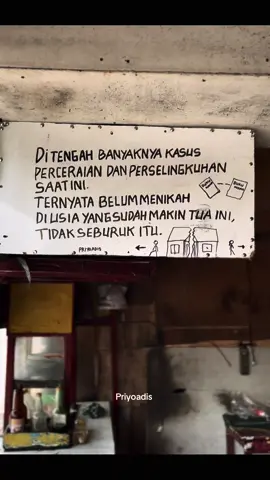 DI TENGAH BANYAKNYA KASUS
PERCERAIAN DAN PERSELINGKUHAN
SAAT INI.
TERNYATA BELUM MENIKAH
DI USIA YANG SUDAH MAKIN TUA INI,
TIDAK SEBURUK ITU.
PRIYOADIS
Priyoadis